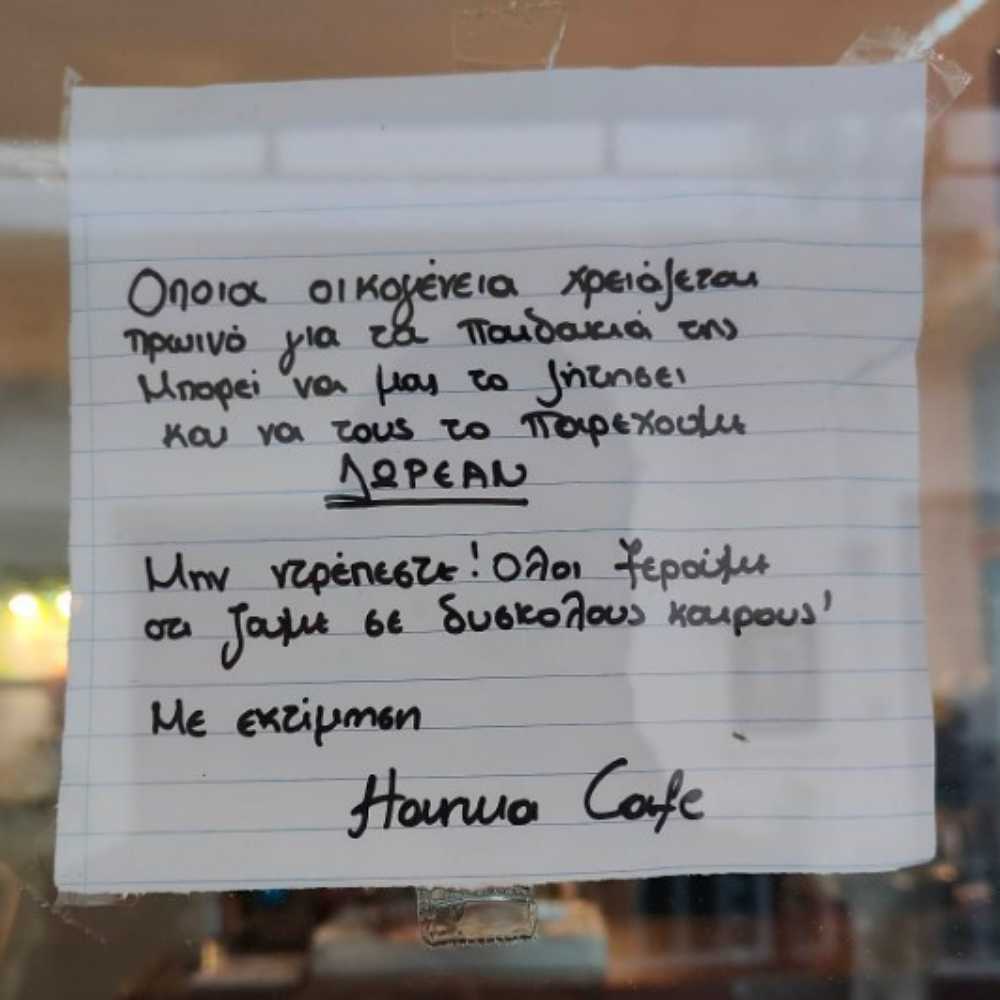 Οποια οικογένεια χρειάζεται
πρωινό για τα παιδακιά της
Μπορεί να μας το ζήτησει
και να τους το παρεχουμε
ΔΩΡΕΑΝ
Μην ντρέπεστε! Ολοι ξεροίμε
οτι ζαμε σε δυσκολους καιρους!
Με εκτίμηση
Cafe